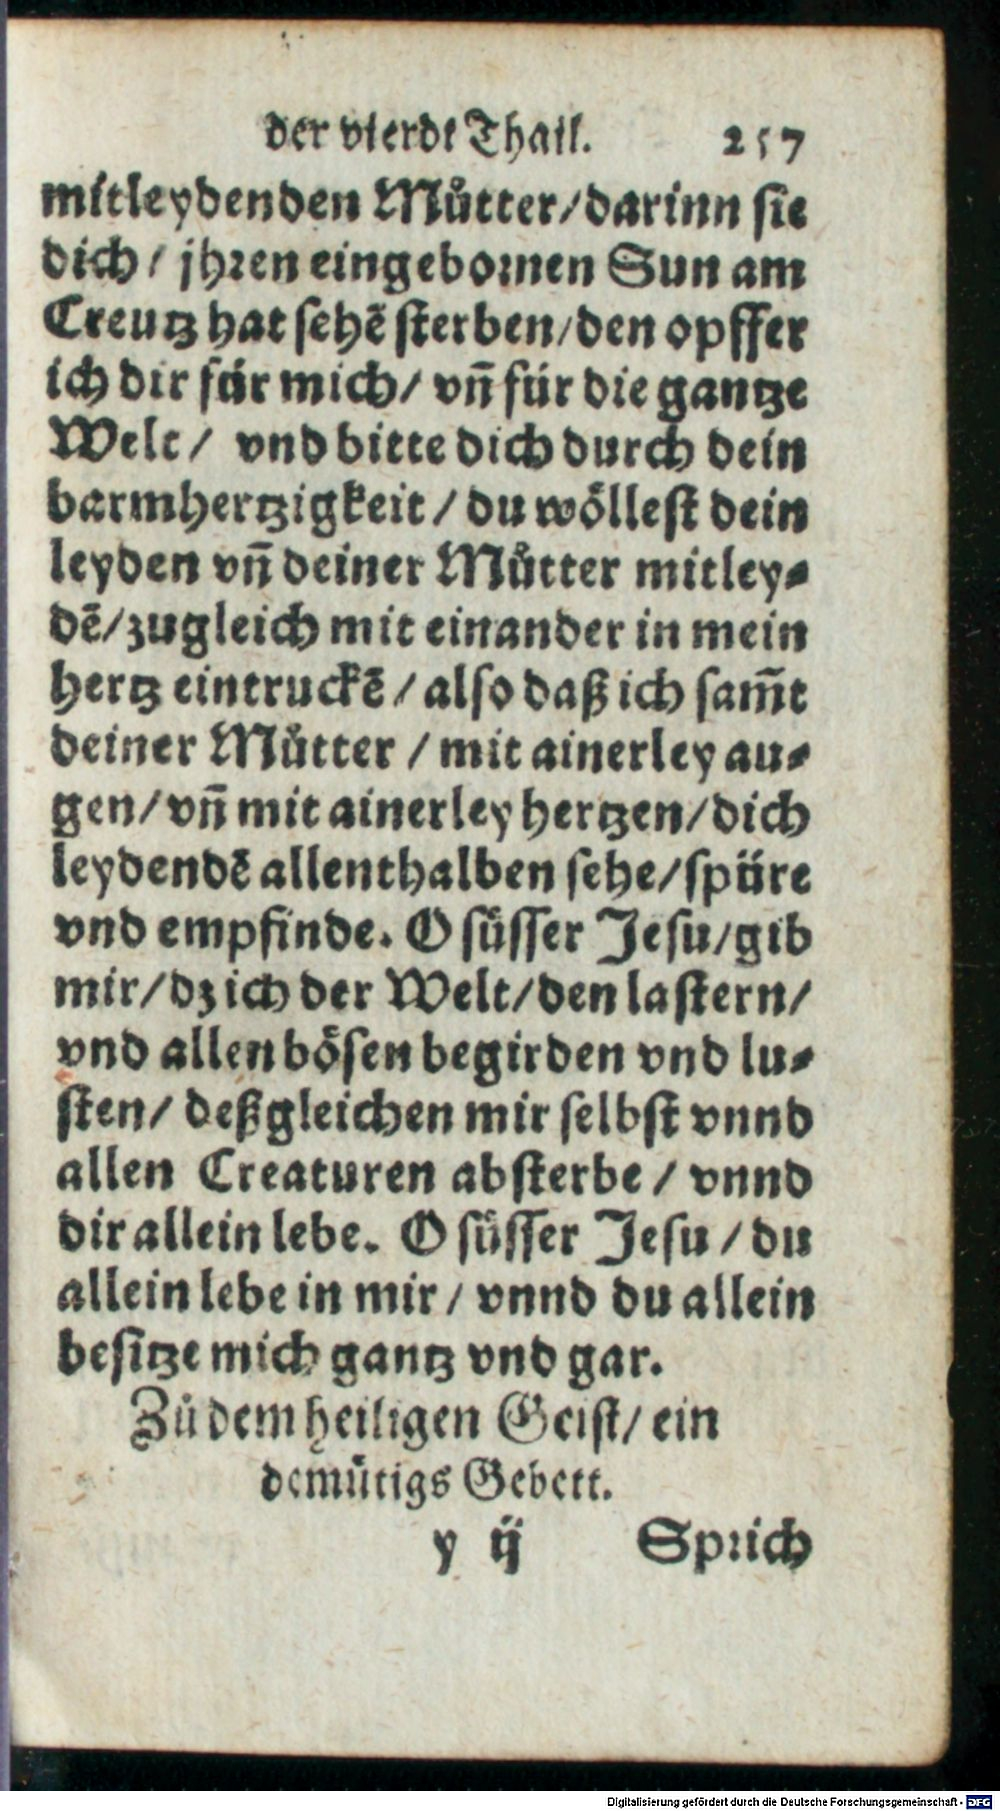 der vierdt Thail. 257
mitleydenden Můtter/darinn sie
dich/ jhren eingebornen Sun am
Creutz hat sehẽ sterben/den opffer
ich dir für mich/ vñ für die gantze
Welt/ vnd bitte dich durch dein
barmhertzigkeit/du wöllest dein
leyden vñ deiner Můtter mitley⸗
dẽ/zugleich mit einander in mein
hertz eintruckẽ/also daß ich sam̃t
deiner Můtter/mit ainerley au⸗
gen/vñ mit ainerley hertzen/dich
leydendẽ allenthalben sehe/spüre
vnd empfinde. O süsser Jesu/gib
mir/dz ich der Welt/den lastern/
vnd allen bösen begirden vnd lu⸗
sten/ deßgleichen mir selbst vnnd
allen Creaturen absterbe/vnnd
dir allein lebe. O süsser Jesu/du
allein lebe in mir/vnnd du allein
besitze mich gantz vnd gar.
Zů dem heiligen Geist/ein
demütigs Gebett.
y ij Sprich
Digitalisierung gefördert durch die Deutsche Forschungsgemeinschaft - DFG